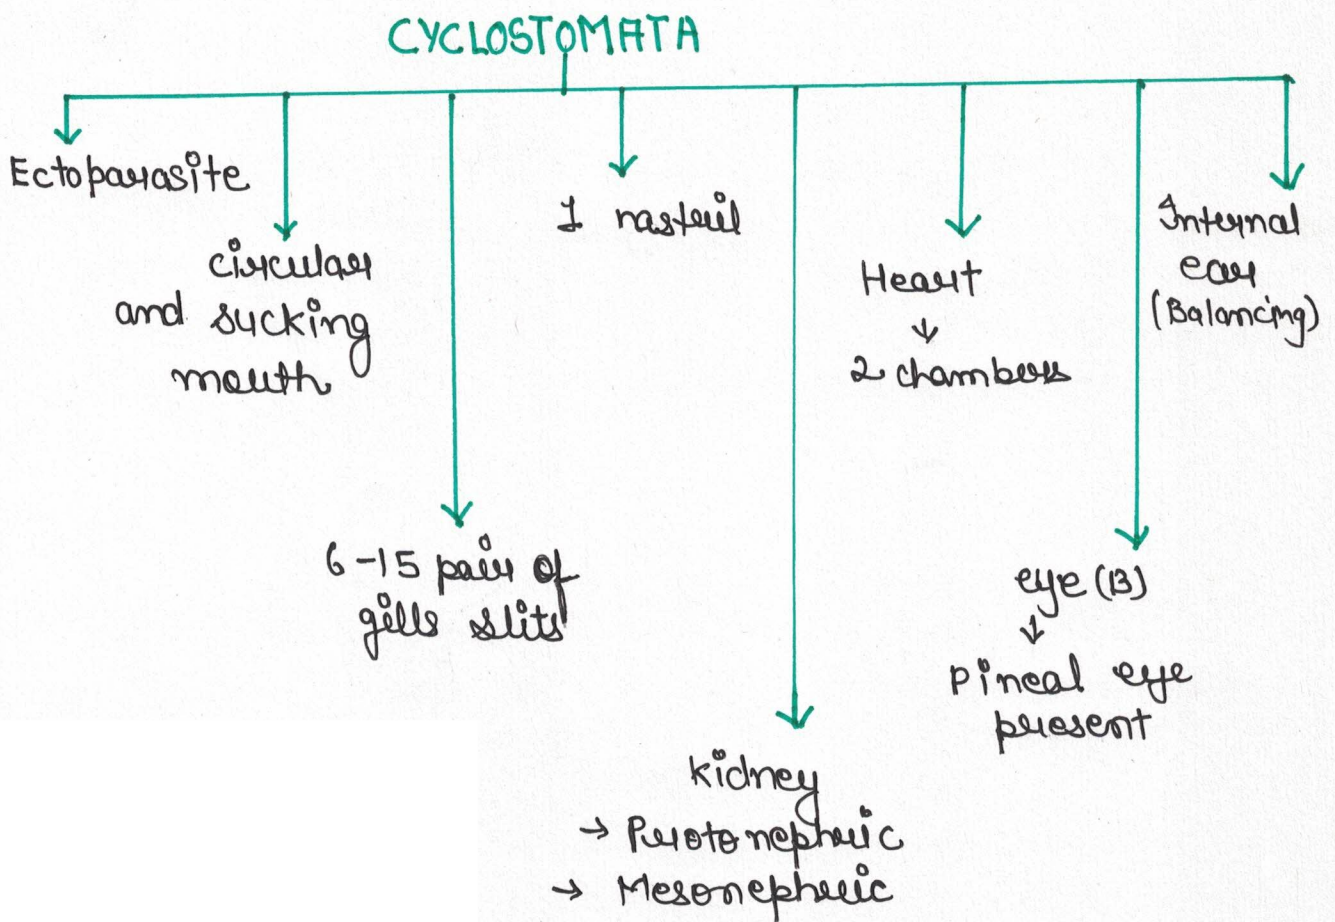 CYCLOSTOMATA
Ectoparasite
circular
and sucking
mouth
6-15 pair of
gills slits
1 nostril
kidney
→ Protonephric
→ Mesonephric
Heart
↓
2 chambers
eye (B)
↓
Pineal eye
present
Internal
ear
(Balancing)